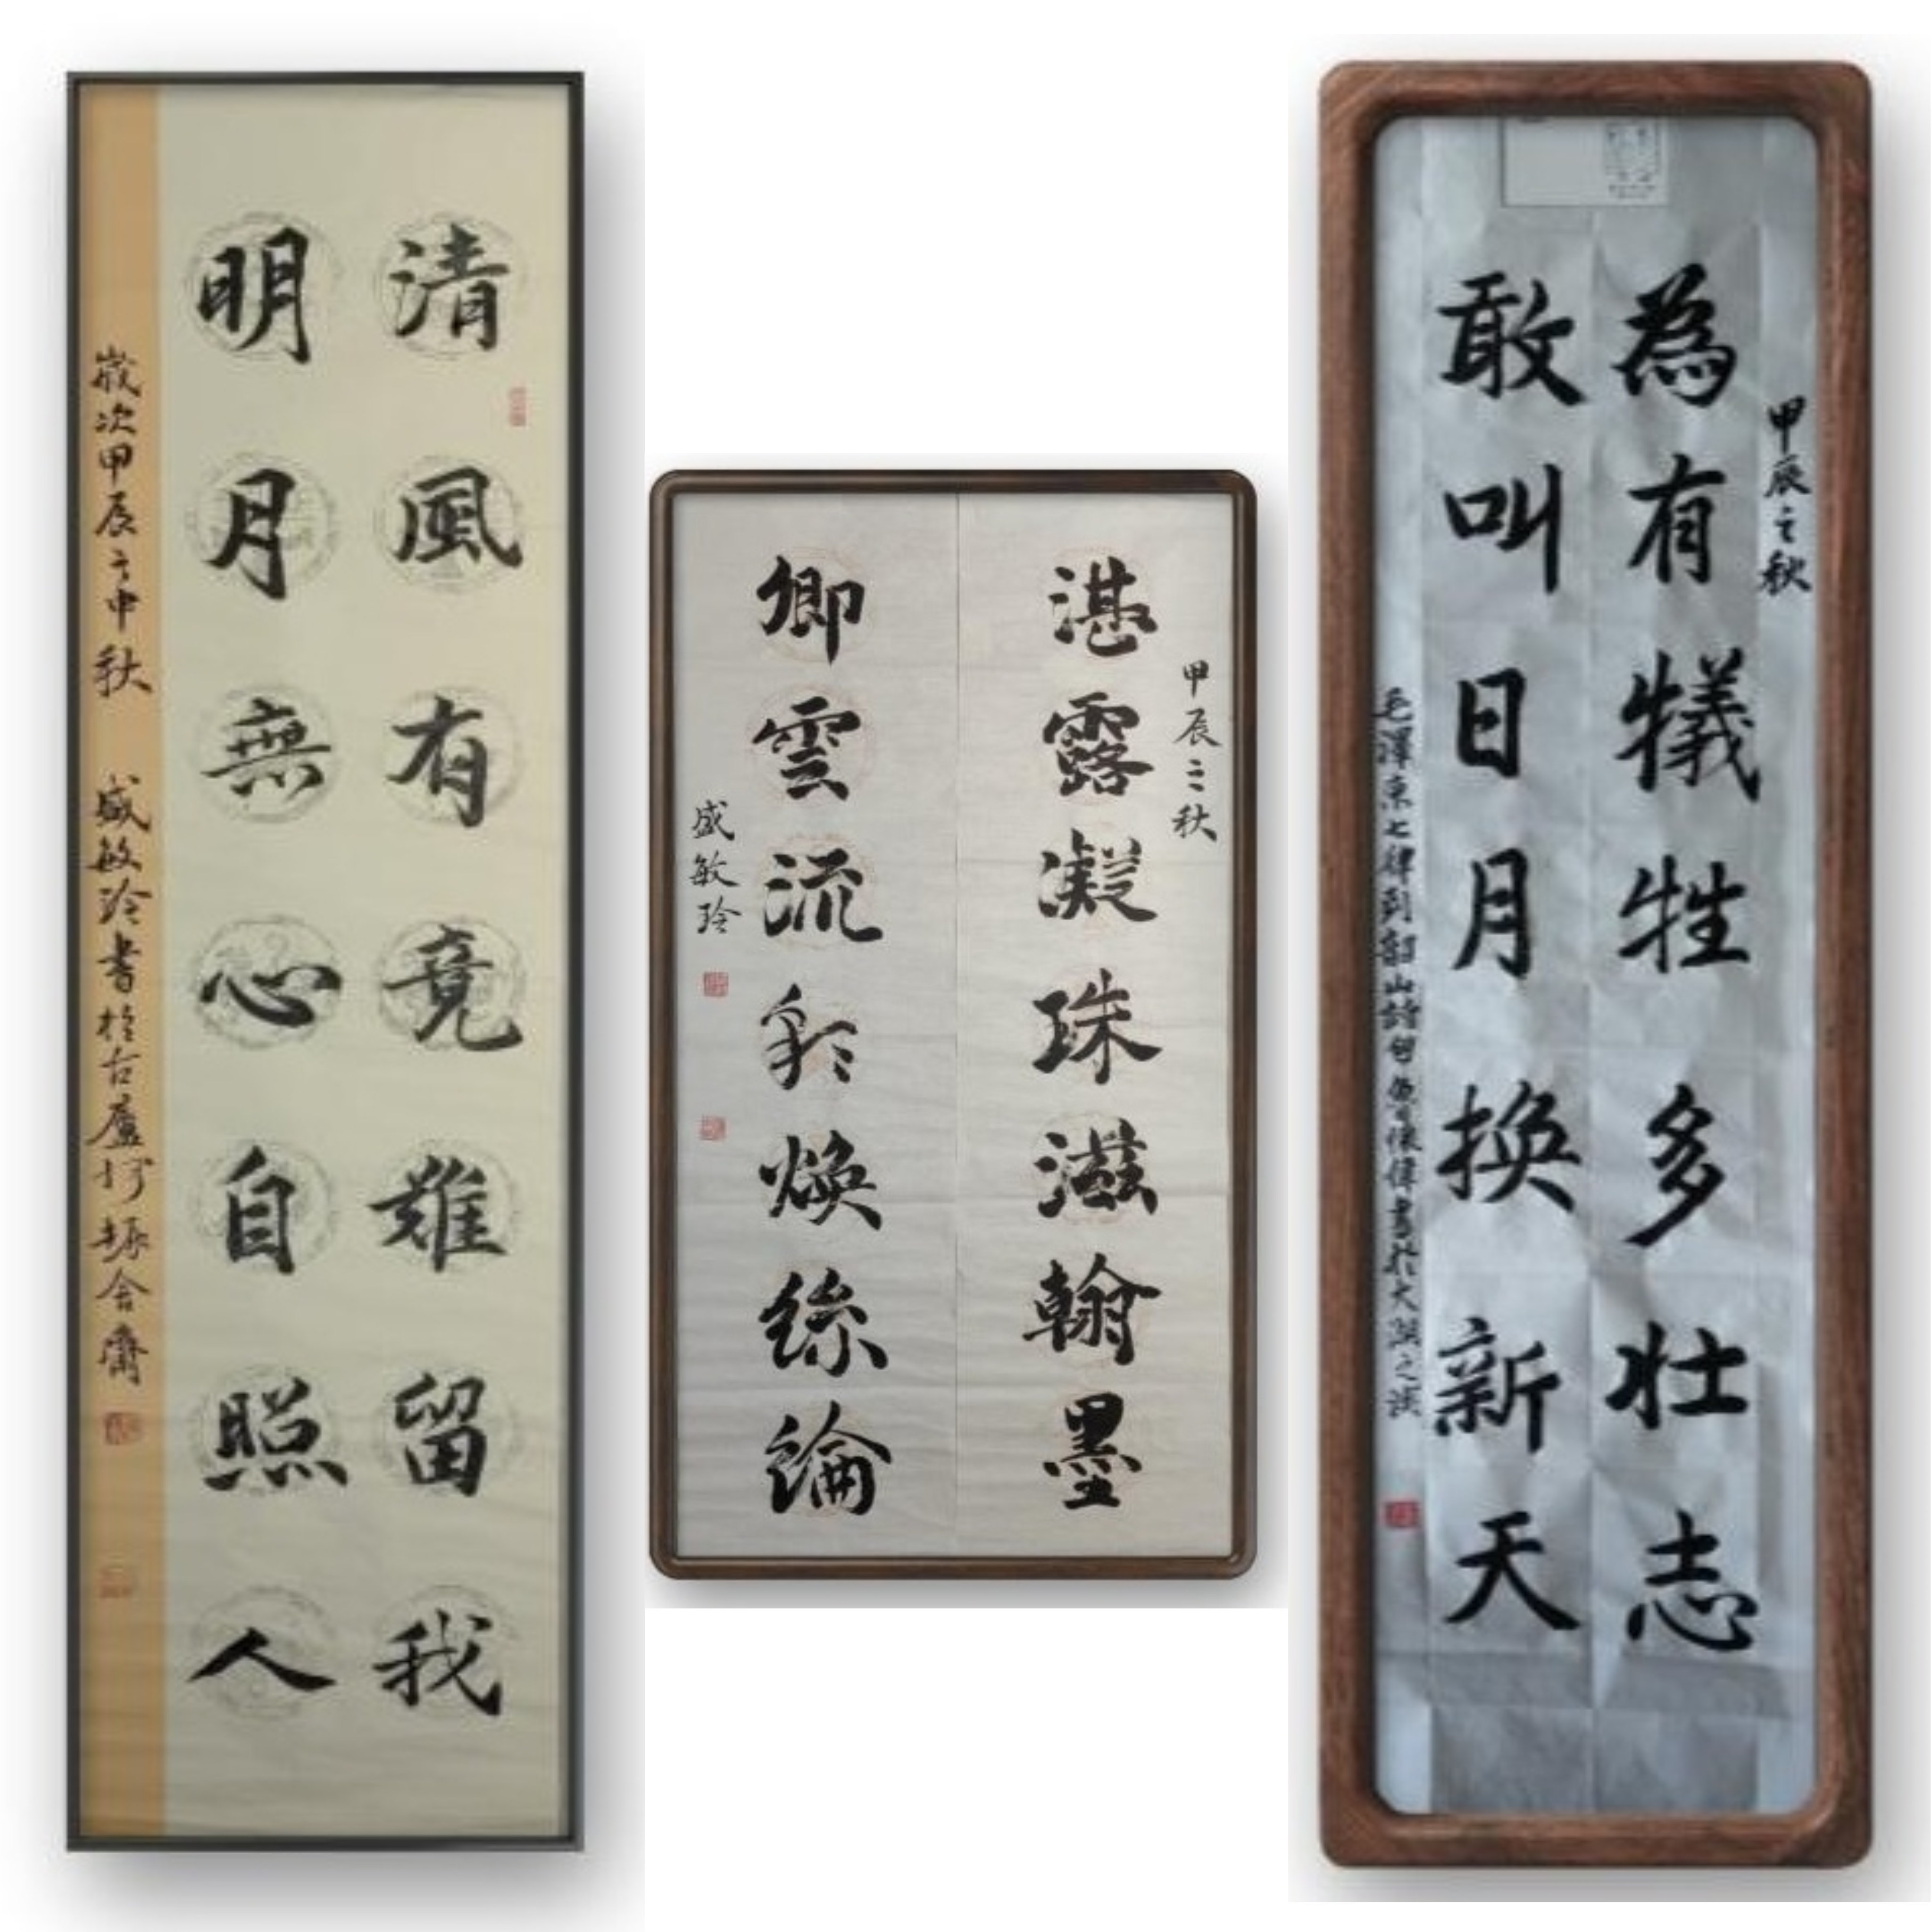 清風有竟難留我
明月無心自照人
歲次甲辰之中秋 盛敏玲書於古廬行振舍齋
甲辰之秋
湛露凝珠滋翰墨
卿雲流彩煥絲綸
盛敏玲
甲辰之秋
為有犧牲多壯志
敢叫日月換新天
毛澤東七律到韶山詩句